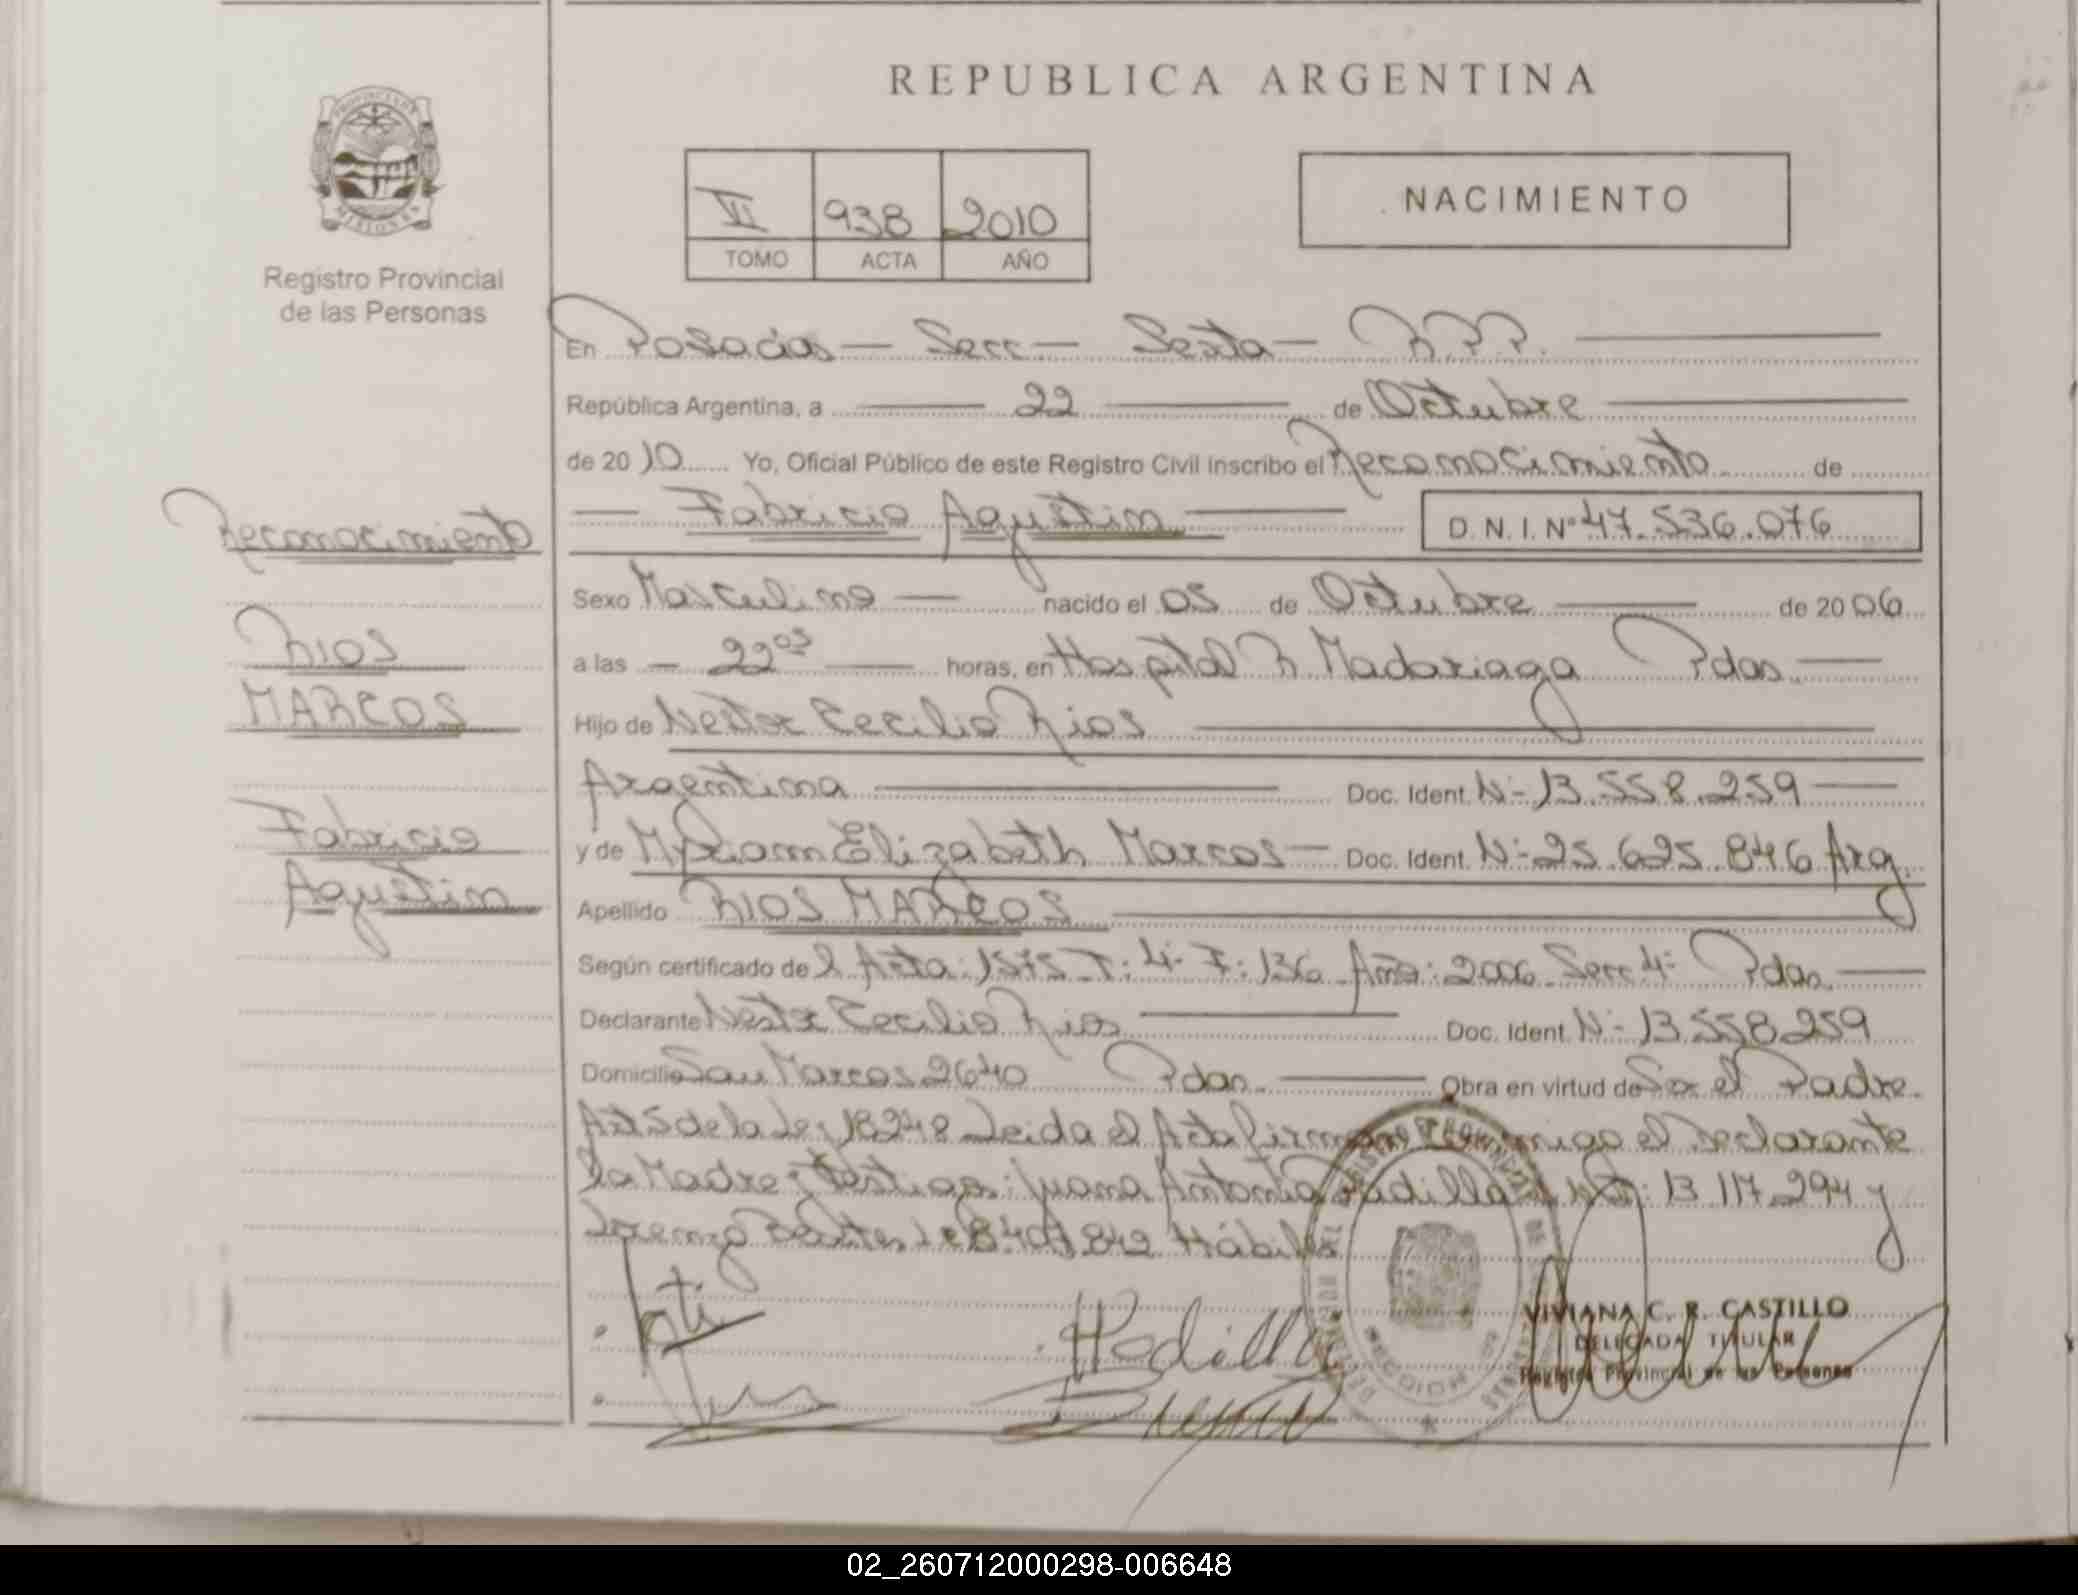 REPUBLICA ARGENTINA
PROVINCIA DE
MISIONES
Registro Provincial
de las Personas
VI 938 2010
TOMO ACTA AÑO
NACIMIENTO
En Posadas — Secc — Sexta — R.P.P.
República Argentina, a 22 de Octubre
de 2010 Yo, Oficial Público de este Registro Civil inscribo el Reconocimiento de
Fabricio Agustin D.N.I. Nº 47.536.076
Sexo Masculino — nacido el 05 de Octubre de 2006
a las — 22 05 — horas, en Hospital R Madariaga Pdas. —
Hijo de Nestor Cecilio Rios
Argentina Doc. Ident. Nº 13.558.259
y de Myriam Elizabeth Marcos — Doc. Ident. Nº 25.625.846 Arg.
Apellido RIOS MARCOS
Según certificado del Acta: 1575 T: 4º F: 136 Año: 2006 Secc 4º Pdas.
Declarante Nestor Cecilio Rios Doc. Ident. Nº 13.558.259
Domicilio San Marcos 2640 Pdas. Obra en virtud de Ser el Padre.
Art 5 de la Ley 18248 Leida el Acta firman conmigo el Declarante
la Madre y testigos: Juana Antonia Padilla 13.117.294 y
Lorenzo Benitez Le 8.401.842 Hábiles
Reconocimiento
RIOS
MARCOS
Fabricio
Agustin
VIVIANA C. R. CASTILLO
DELEGADA TITULAR
Registro Provincial de las Personas
02_260712000298-006648